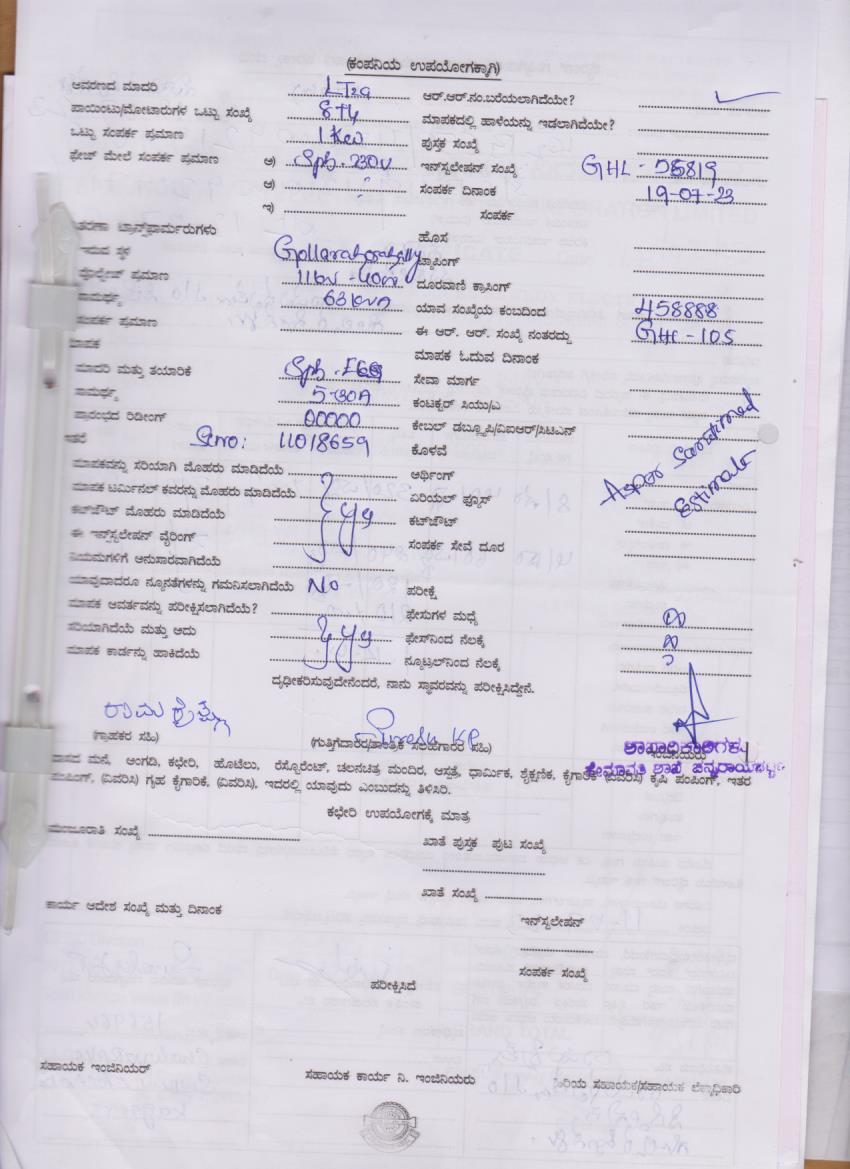 (ಕಂಪನಿಯ ಉಪಯೋಗಕ್ಕಾಗಿ)
ಆವರಣದ ಮಾದರಿ LT2a ಆರ್.ಆರ್.ನಂ.ಬರೆಯಲಾಗಿದೆಯೇ? ✓
ಪಾಯಿಂಟು/ಮೋಟಾರುಗಳ ಒಟ್ಟು ಸಂಖ್ಯೆ ಮಾಪಕದಲ್ಲಿ ಹಾಳೆಯನ್ನು ಇಡಲಾಗಿದೆಯೇ?
ಒಟ್ಟು ಸಂಪರ್ಕ ಪ್ರಮಾಣ 1 Kw ಪುಸ್ತಕ ಸಂಖ್ಯೆ
ಫೇಜ್ ಮೇಲೆ ಸಂಪರ್ಕ ಪ್ರಮಾಣ ಅ) Sph. 230v ಇನ್‌ಸ್ಟಲೇಷನ್ ಸಂಖ್ಯೆ GHL -
ಆ) ಸಂಪರ್ಕ ದಿನಾಂಕ 19-07-23
ಇ) ಸಂಪರ್ಕ
ತರಣಾ ಟ್ರಾನ್ಸ್‌ಫಾರ್ಮರುಗಳು ಹೊಸ
ಇರುವ ಸ್ಥಳ Gollarahosahally ಟ್ಯಾಪಿಂಗ್
ವೋಲ್ಟೇಜ್ ಪ್ರಮಾಣ ದೂರವಾಣಿ ಕ್ರಾಸಿಂಗ್
ಸಾಮರ್ಥ್ಯ 63 KVA ಯಾವ ಸಂಖ್ಯೆಯ ಕಂಬದಿಂದ 458888
ಸಂಪರ್ಕ ಪ್ರಮಾಣ ಈ ಆರ್. ಆರ್. ಸಂಖ್ಯೆ ನಂತರದ್ದು GHL - 105
ಮಾಪಕ ಮಾಪಕ ಓದುವ ದಿನಾಂಕ
ಮಾದರಿ ಮತ್ತು ತಯಾರಿಕೆ Sph. ಸೇವಾ ಮಾರ್ಗ
ಸಾಮರ್ಥ್ಯ 5-30A ಕಂಟಕ್ಟರ್ ಸಿಯು/ಎ
ಪ್ರಾರಂಭದ ರಿಡೀಂಗ್ 00000 ಕೇಬಲ್ ಡಬ್ಲ್ಯೂಪಿ/ವಿಐಆರ್/ಸಿಟಿಎನ್
ಇತರೆ Slno: 11018659 ಕೊಳವೆ
ಮಾಪಕವನ್ನು ಸರಿಯಾಗಿ ಮೊಹರು ಮಾಡಿದೆಯೆ ಅರ್ಥಿಂಗ್ Asper Sanctimed
ಮಾಪಕ ಟರ್ಮಿನಲ್ ಕವರನ್ನು ಮೊಹರು ಮಾಡಿದೆಯೆ ಏರಿಯಲ್ ಫ್ಯೂಸ್ Estimate
ಕಟ್‌ಔಟ್ ಮೊಹರು ಮಾಡಿದೆಯೆ yes ಕಟ್‌ಔಟ್
ಈ ಇನ್‌ಸ್ಟಲೇಷನ್ ವೈರಿಂಗ್ ಸಂಪರ್ಕ ಸೇವೆ ದೂರ
ನಿಯಮಗಳಿಗೆ ಅನುಸಾರವಾಗಿದೆಯೆ
ಯಾವುದಾದರೂ ನ್ಯೂನತೆಗಳನ್ನು ಗಮನಿಸಲಾಗಿದೆಯೆ No ಪರೀಕ್ಷೆ
ಮಾಪಕ ಆವರ್ತವನ್ನು ಪರೀಕ್ಷಿಸಲಾಗಿದೆಯೆ? ಫೇಸುಗಳ ಮಧ್ಯೆ
ಸರಿಯಾಗಿದೆಯೆ ಮತ್ತು ಅದು yes ಫೇಸ್‌ನಿಂದ ನೆಲಕ್ಕೆ
ಮಾಪಕ ಕಾರ್ಡನ್ನು ಹಾಕಿದೆಯೆ ನ್ಯೂಟ್ರಲ್‌ನಿಂದ ನೆಲಕ್ಕೆ
ದೃಢೀಕರಿಸುವುದೇನೆಂದರೆ, ನಾನು ಸ್ಥಾವರವನ್ನು ಪರೀಕ್ಷಿಸಿದ್ದೇನೆ.
Suresh KP
(ಗ್ರಾಹಕರ ಸಹಿ) (ಗುತ್ತಿಗೆದಾರರ/ತಾಂತ್ರಿಕ ಸಲಹೆಗಾರರ ಸಹಿ) ಇಂಜಿನಿಯರು
ಶಾಖಾಧಿಕಾರಿಗಳು
ಹೇಮಾವತಿ ಶಾಖೆ ಚನ್ನರಾಯಪಟ್ಟಣ
ವಾಸದ ಮನೆ, ಅಂಗಡಿ, ಕಛೇರಿ, ಹೊಟೆಲು, ರೆಸ್ಟೋರೆಂಟ್, ಚಲನಚಿತ್ರ ಮಂದಿರ, ಆಸ್ಪತ್ರೆ, ಧಾರ್ಮಿಕ, ಶೈಕ್ಷಣಿಕ, ಕೈಗಾರಿಕೆ (ವಿವರಿಸಿ) ಕೃಷಿ ಪಂಪಿಂಗ್, ಇತರ
ಪಂಪಿಂಗ್, (ವಿವರಿಸಿ) ಗೃಹ ಕೈಗಾರಿಕೆ, (ವಿವರಿಸಿ), ಇದರಲ್ಲಿ ಯಾವುದು ಎಂಬುದನ್ನು ತಿಳಿಸಿರಿ.
ಕಛೇರಿ ಉಪಯೋಗಕ್ಕೆ ಮಾತ್ರ
ಮಂಜೂರಾತಿ ಸಂಖ್ಯೆ ಖಾತೆ ಪುಸ್ತಕ ಪುಟ ಸಂಖ್ಯೆ
ಖಾತೆ ಸಂಖ್ಯೆ
ಕಾರ್ಯ ಆದೇಶ ಸಂಖ್ಯೆ ಮತ್ತು ದಿನಾಂಕ ಇನ್‌ಸ್ಟಲೇಷನ್
ಸಂಪರ್ಕ ಸಂಖ್ಯೆ
ಪರೀಕ್ಷಿಸಿದೆ
ಸಹಾಯಕ ಇಂಜಿನಿಯರ್ ಸಹಾಯಕ ಕಾರ್ಯ ನಿ. ಇಂಜಿನಿಯರು ಹಿರಿಯ ಸಹಾಯಕ/ಸಹಾಯಕ ಲೆಕ್ಕಾಧಿಕಾರಿ